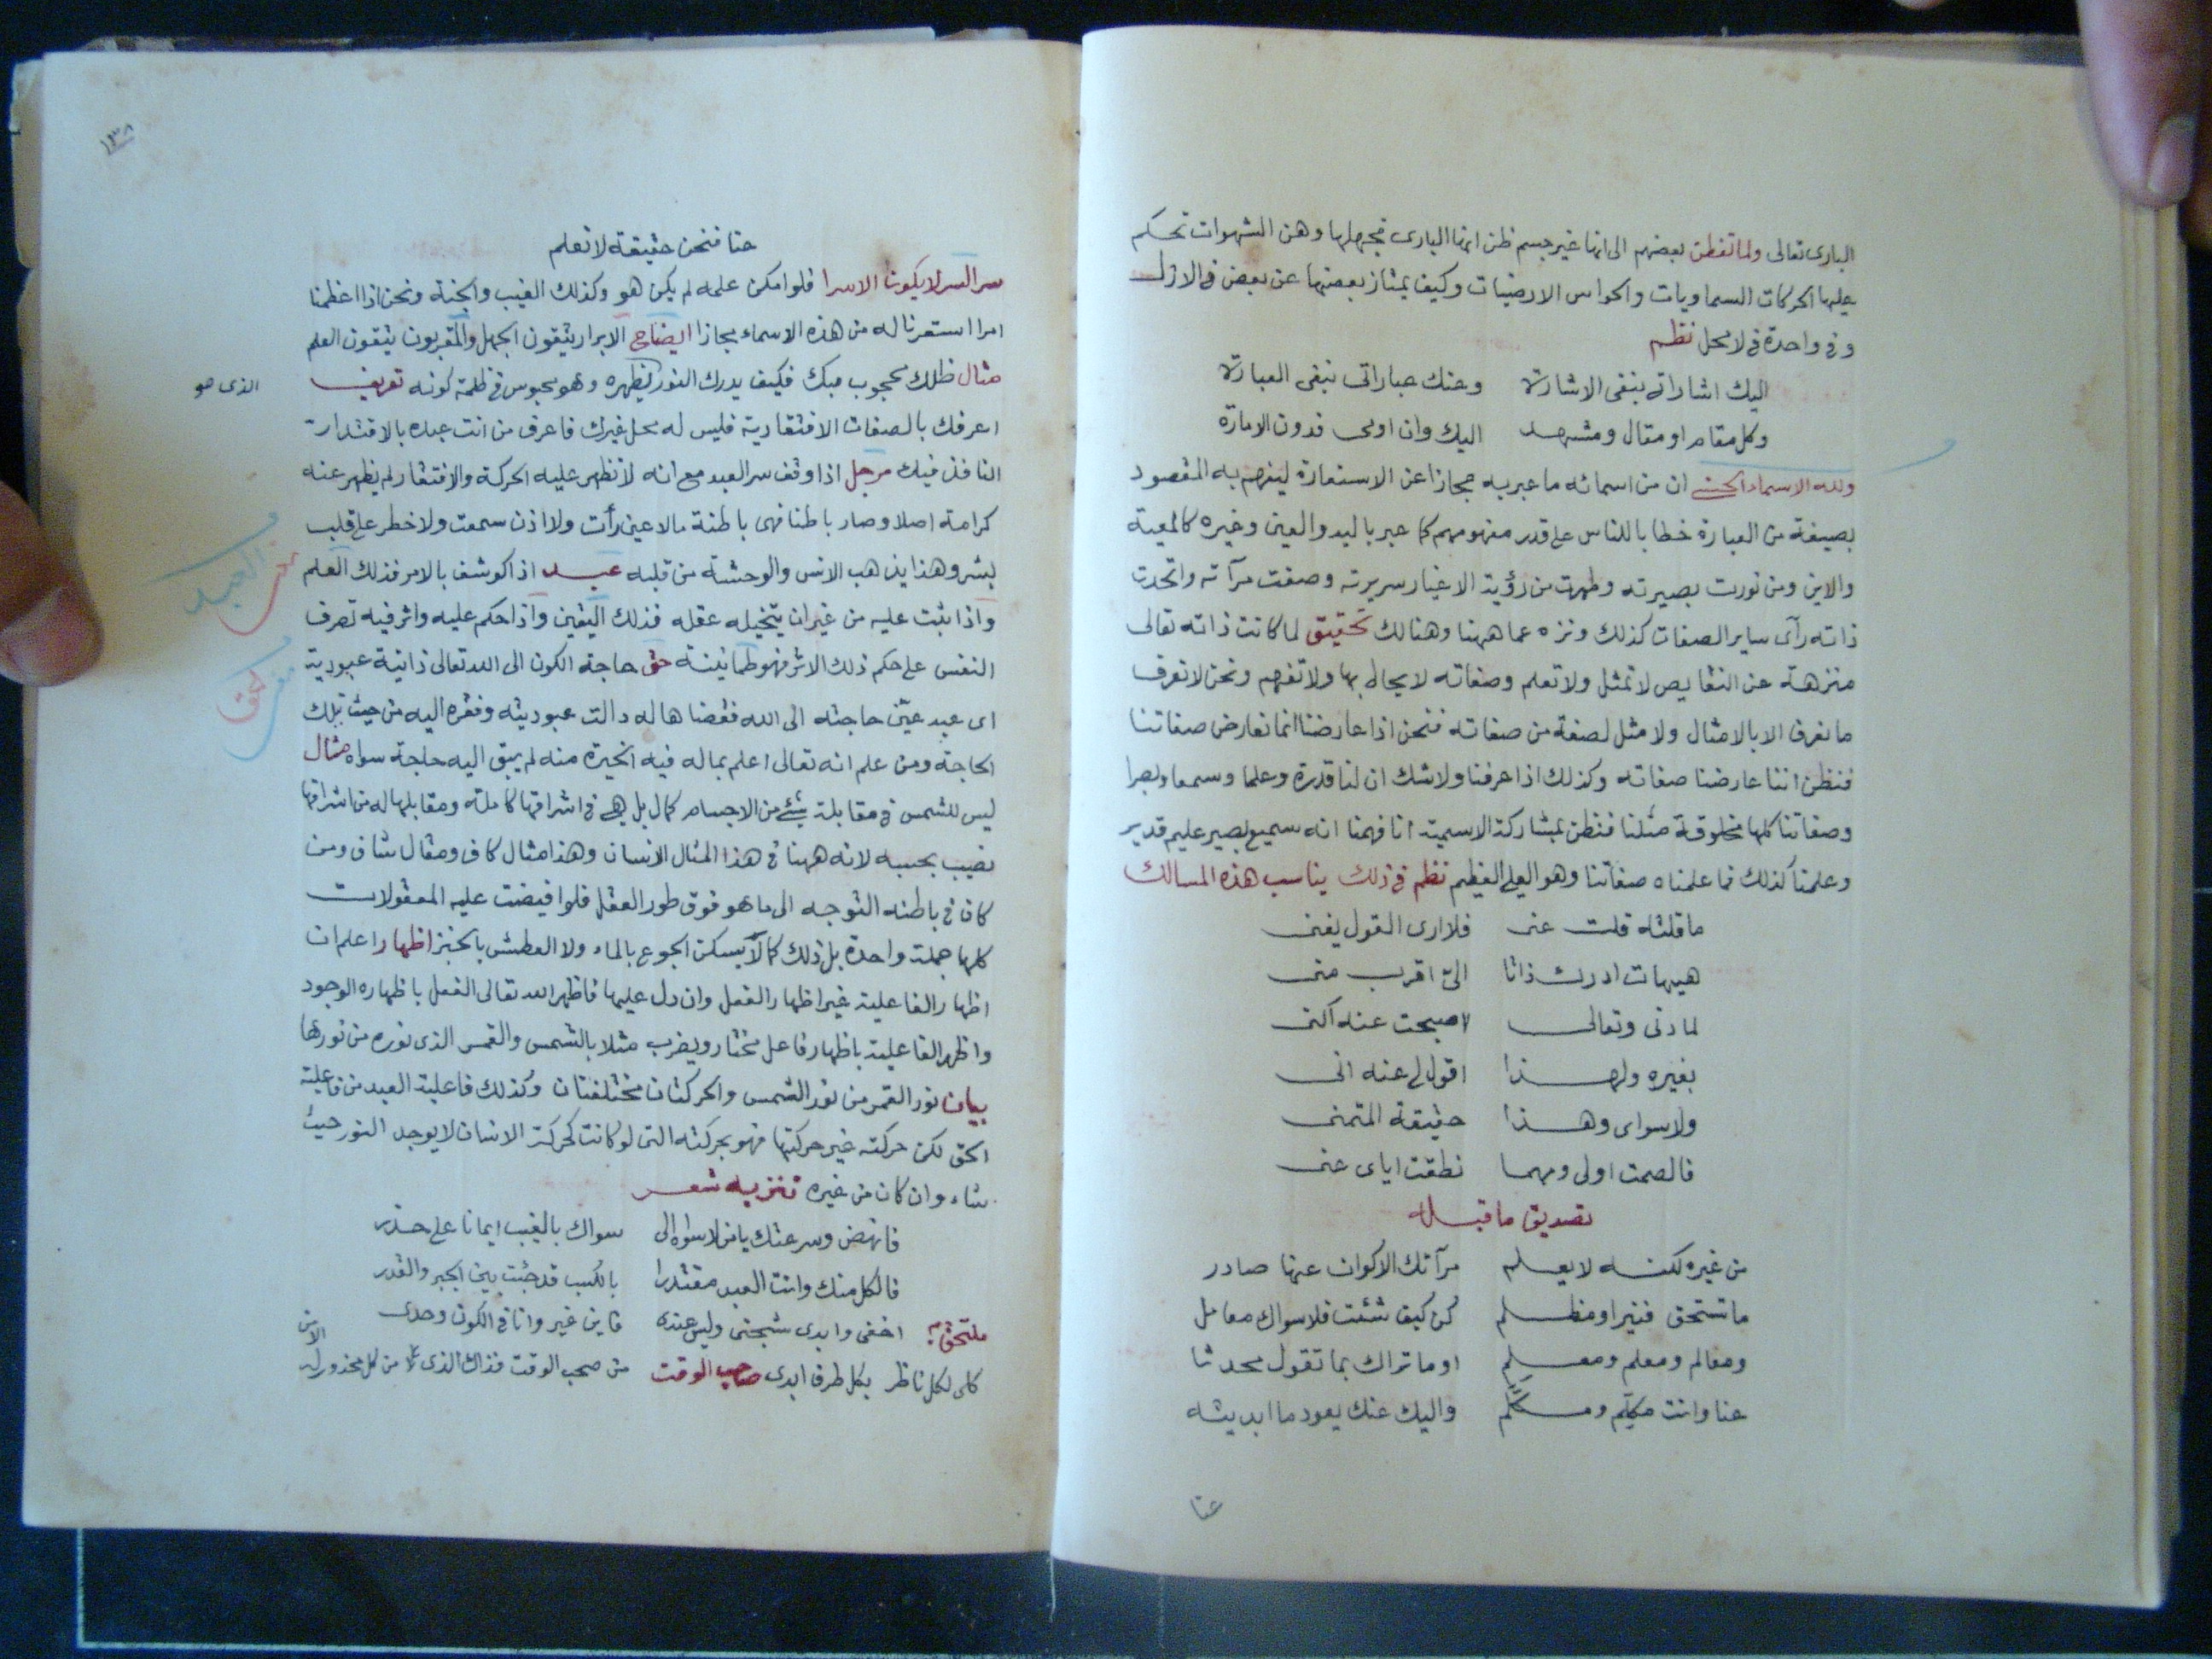 البارى تعالى ولما تفطن بعضهم الى انها غير جسم ظن انها البارى فجهلها وهن الشهوات تحكم
عليها الحركات السماويات والحواس الارضيات وكيف يمتاز بعضها عن بعض فى الازل
وفى واحدة فى لا محل نظم
اليك اشاراتى بنفى الاشارة وعنك عباراتى بنفى العبارة
وكل مقام او مقال ومشهد اليك وان اوحى فدون الامارة
ولله الاسماء الحسنى ان من اسمائه ما عبر به مجازا عن الاستعارة ليفهم به المقصود
بصيغة من العبارة خطابا للناس على قدر مفهومهم كما عبر باليد والعين وغيره كالمعية
والاين ومن نورت بصيرته وطهرت من رؤية الاغيار سريرته وصفت مرآته واتحدت
ذاته رآى ساير الصفات كذلك ونزه عما ههنا وهنالك تحقيق لما كانت ذاته تعالى
منزهة عن النقايص لا تمثل ولا تعلم وصفاته لا يحاط بها ولا تفهم ونحن لا نعرف
ما نعرف الا بالامثال ولا مثل لصفة من صفاته فنحن اذا عارضنا انما نعارض صفاتنا
فنظن اننا عارضنا صفاته وكذلك اذا عرفنا ولا شك ان لنا قدرة وعلما وسمعا وبصرا
وصفاتنا كلها مخلوقة مثلنا فنظن بمشاركة الاسمية انا فهمنا انه سميع بصير عليم قدير
وعلمنا كذلك فما علمناه صفاتنا وهو العلى العظيم نظم فى ذلك يناسب هذه المسالك
ما قلته قلت عنى فلا ارى القول يغنى
هيهات ادرك ذاتا الىّ اقرب منى
لما دنى وتعالى لاصبحت عنه اكنى
بغيره ولهذا اقول لى عنه انى
ولا سواى وهذا حقيقة المتمنى
فالصمت اولى ومهما نطقت اياى عنى
تصديق ما قبله
من غيره لكنه لا يعلم مرآتك الاكوان عنها صادر
ما تستحق فنير او مظلم كن كيف شئت فلا سواك معامل
ومعالم ومعلم ومعلم او ما تراك بما تقول محدثا
عنا وانت مكلّم ومكلّم واليك عنك يعود ما ابديته
عنا
١٣٨
عنا فنحن حقيقة لا نعلم
سر السر لا يكون الا سرا فلو امكن علمه لم يكن هو وكذلك الغيب والجنة ونحن اذا اعظمنا
امرا استعرنا له من هذه الاسماء مجازا ايضاح الابرار يتقون الجهل والمقربون يتقون العلم
مثال ظلك محجوب مبك فكيف يدرك النور ليظهره وهو محبوس فى ظلمة كونه تعريف
الذى هو
اعرفك بالصفات الافتقارية فليس له محل غيرك فاعرف من انت عبده بالاقتدارية
النافذ فيك مرجل اذا وقف سر العبد مع انه لا تظهر عليه الحركة والافتقار لم يظهر عنه
كرامة اصلا وصار باطنا فهى باطنة ما لا عين رأت ولا اذن سمعت ولا خطر على قلب
بشر وهذا يذهب الانس والوحشة من قلبه عبد اذا كوشف بالامر فذلك العلم
واذا ثبت عليه من غير ان يتخيله عقله فذلك اليقين واذا حكم عليه واثر فيه تصرف
النفس على حكم ذلك الاثر فهو طمانينة حق حاجة الكون الى الله تعالى ذاتية عبودية
اى عبد عيّن حاجته الى الله فقضاها له دالت عبوديته وفقره اليه من حيث تلك
الحاجة ومن علم انه تعالى اعلم بما له فيه الخيرة منه لم يبق اليه حاجة سواه مثال
ليس للشمس فى مقابلة شئ من الاجسام كمال بل هى فى اشراقها كاملة ومقابلها له من اشراقها
نصيب بحسبه لانه ههنا فى هذا المثال الانسان وهذا مثال كاف ومقال شاف ومن
كان فى باطنه التوجه الى ما هو فوق طور العقل فلو افيضت عليه المعقولات
كلها جملة واحدة بل ذلك كما لا يسكن الجوع بالماء ولا العطش بالخبز اظهار اعلم ان
اظهار الفاعلية غير اظهار الفعل وان دل عليها فاظهر الله تعالى الفعل باظهاره الوجود
واظهر الفاعلية باظهار فاعل مختار ويضرب مثلا بالشمس والقمر الذى نوره من نورها
بيان نور القمر من نور الشمس والحركتان مختلفتان وكذلك فاعلية العبد من فاعلية
الحق لكن حركته غير حركتها فهو بحركته التى لو كانت كحركة الانسان لا يوجد النور حيث
شاء وان كان من غيره تنزيه شعر
فانهض وسر عنك يا من لا سواه الى سواك بالغيب ايمانا على حذر
فالكل منك وانت العبد مقتدرا بالكسب قد جئت بين الجبر والقدر
ملتحق اخفى وابدى شجنى وليس عندى فاين غير وانا فى الكون وحدى
كلى لكل ناظر بكل طرف ابدى صاحب الوقت من صحب الوقت فذاك الذى له من كل محذور له
الامن